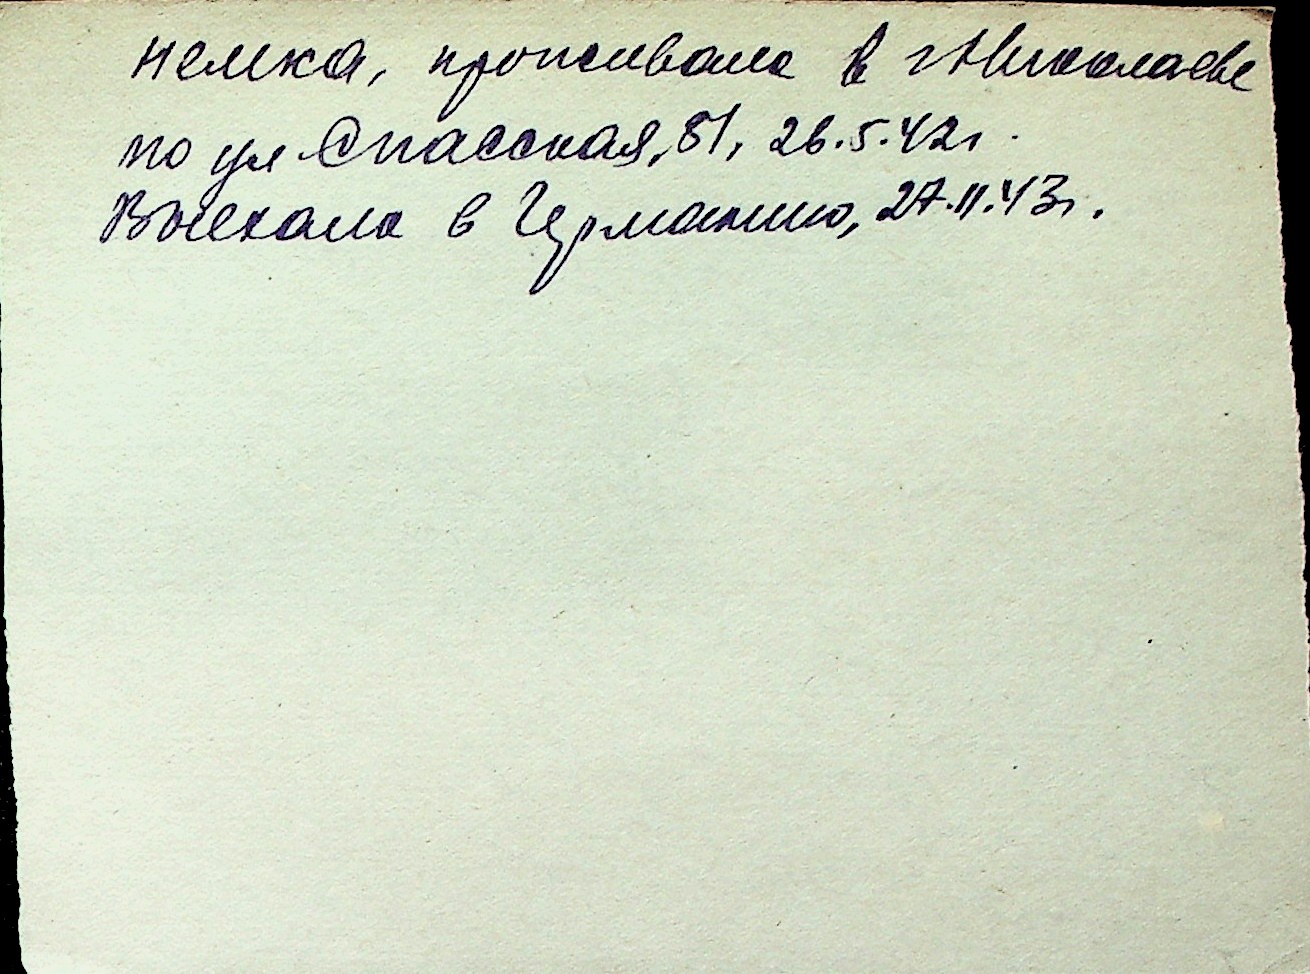 немка, проживала в г Николаеве
по ул Спасская, 81, 26.5.42г.
Выехала в Германию, 27.11.43г.